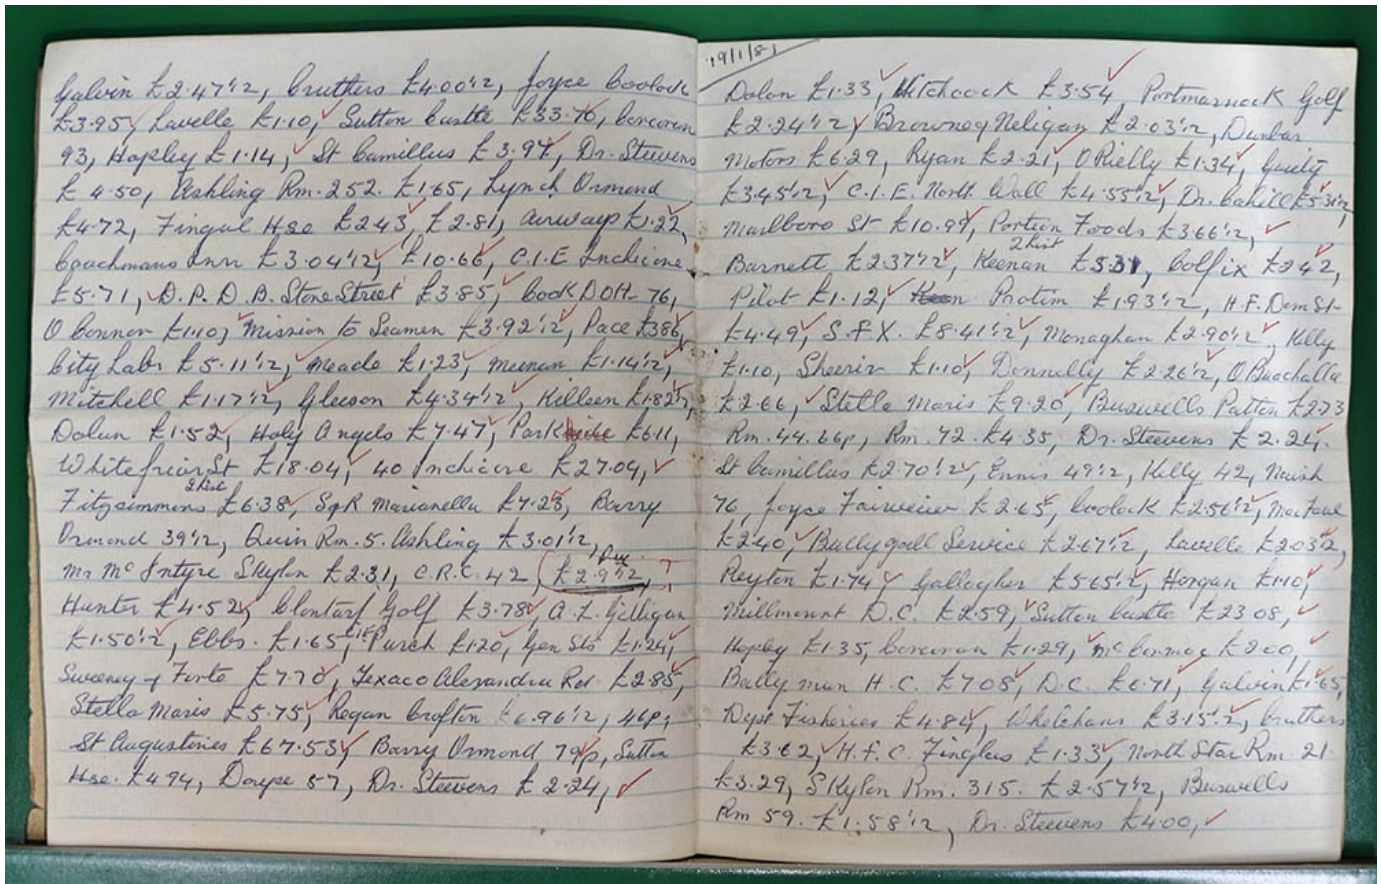 Galvin £2.47½, Cruthers £4.00½, Joyce Coolock
£3.95, Lavelle £1.10, Sutton Castle £33.76, Corcoran
93, Hopley £1.14, St Camillus £3.97, Dr. Steevens
£4.50, Ashling Rm. 252. £1.65, Lynch Ormond
£4.72, Fingal Hse £2.43, £2.81, Airways £1.22,
Coachmans Inn £3.04½, £10.66, C.I.E Inchicore
£5.71, D.P.D.B. Store Street £3.85, Cook DOH 76,
O Connor £1.10, Mission to Seamen £3.92½, Pace £386,
City Labs £5.11½, Meade £1.23, Meenan £1.14½,
Mitchell £1.17½, Gleeson £4.34½, Killeen £1.82½,
Dolan £1.52, Holy Angels £7.47, Park £6.11,
Whitefriar St £18.04, 40 Inchicore £27.04,
2 list
Fitzsimmons £6.38, Sgt Marianella £7.25, Barry
Ormond 39½, Quin Rm. 5. Ashling £3.01½,
Due
Mr Mc Intyre Skylon £2.31, C.R.C. 42 £2.9½,
Hunter £4.52, Clontarf Golf £3.78, A. L. Gilligan
£1.50½, Ebbs. £1.65, CIE Purch £1.20, Gen Sts £1.24,
Sweeney + Forte £7.70, Texaco Alexandra Rd £2.85,
Stella Maris £5.75, Regan Crofton £6.96½, 46p,
St Augustines £67.53, Barry Ormond 79p, Sutton
Hse. £4.94, Doupe 57, Dr. Steevens £2.24,
19/1/81
Dolan £1.33, Hitchcock £3.54, Portmarnock Golf
£2.24½, Browne Neligan £2.03½, Dunbar
Motors £6.29, Ryan £2.21, O Rielly £1.34, Guilty
£3.45½, C.I.E. North Wall £4.55½, Dr. Cahill £5.31½,
Marlboro St £10.99, Portion Foods £3.66½,
2 list
Barnett £2.37½, Keenan £5.31, Colfix £2.42,
Pilot £1.12, Protim £1.93½, H.F. Dom St
£4.49, S.F.X. £8.41½, Monaghan £2.90½, Kelly
£1.10, Sheerin £1.10, Donnelly £2.26½, O Buachalla
£2.66, Stella Maris £9.20, Buswells Patton £2.73
Rm. 44. 66p, Rm. 72. £4.35, Dr. Steevens £2.24.
St Camillus £2.70½, Ennis 49½, Kelly 42, Naish
76, Joyce Fairview £2.65, Coolock £2.56½, MacFaul
£2.40, Ballygall Service £2.67½, Lavelle £2.03½,
Peyton £1.74, Gallagher £5.65½, Horgan £1.10,
Millmount D.C. £2.59, Sutton Castle £23.08,
Hopley £1.35, Corcoran £1.29, Mc Cormac £2.00,
Ballymun H.C. £7.05, D.C. £6.71, Galvin £1.65,
Dept Fisheries £4.84, Whelehans £3.15½, Cruthers
£3.62, H.F.C. Finglas £1.33, North Star Rm. 21
£3.29, Skylon Rm. 315. £2.57½, Buswells
Rm 59. £1.58½, Dr. Steevens £4.00,